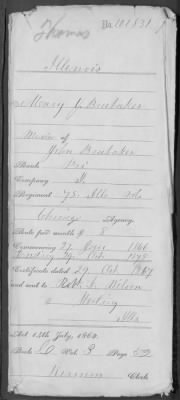 Thomas
No. 101831.
Illinois
Mary J Brubaker
Widow of
John Brubaker
Rank Pri
Company
Regiment 75 Ills Vols
Chicago Agency.
Rate per month $ 8
Commencing 27 1864
Ending Oct. 1878
Certificate dated 29 Oct 1867
and sent to Wilson
Sterling
Ills
Act 14th July, 1862.
Book D Vol. 3 Page 52
Clerk